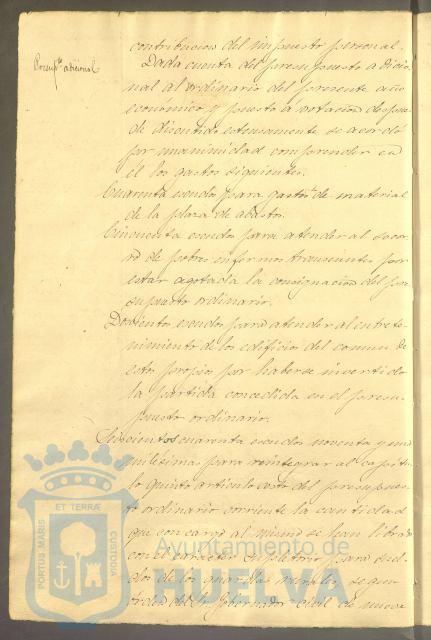 Presup.to adicional
contribucion del impuesto personal.
Dada cuenta del presupuesto adicio
nal al ordinario del presente año
economico y puesto a votacion despues
de discutido estensamente se acordó
por unanimidad comprender en
él los gastos siguientes.
Cuarenta escudos para gastos de material
de la plaza de abastos.
Cincuenta escudos para atender al socor
ro de pobres enfermos transeuntes por
estar agotada la consignacion del pre
supuesto ordinario.
Doscientos escudos para atender al entrete-
nimiento de los edificios del comun de
estos propios por haberse invertido
la partida concedida en el presu-
puesto ordinario.
Seiscientos cuarenta escudos noventa y una
milésimas para reintegrar al capitu-
lo quinto articulo del presupues
to ordinario corriente la cantidad
que con cargo al mismo se han librado
con el caracter supletorio para suel
dos de los guardas rurales segun
orden del Gobernador Civil de nueve
ET TERRÆ
PORTUS MARIS
CUSTODIA
Ayuntamiento de
HUELVA